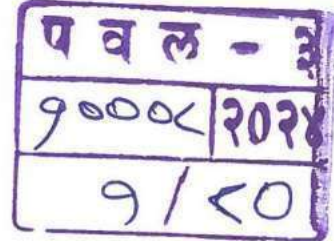 प व ल - ३
१०००८ २०२४
१ / ८०